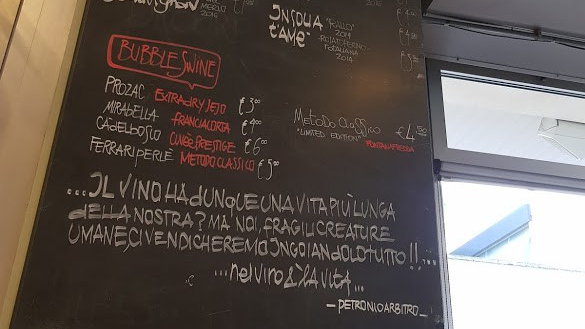 MERLO
2016
INSOLIA
"FIALLO"
2014
T'AME
2014
BUBBLESWINE
PROZAC EXTRADRY JEJO €3,00
MIRABELLA FRANCIACORTA €4,00
CÀDELBOSCO CUVÈEPRESTIGE €6,00
FERRARIPERLÈ METODOCLASSICO €5,00
METODO CLASSICO €4,50
"LIMITED EDITION" FONTANAFREDDA
...IL VINO HA DUNQUE UNA VITA PIÙ LUNGA
DELLA NOSTRA? MA NOI, FRAGILI CREATURE
UMANE, CI VENDICHEREMO INGOIANDOLO TUTTO!!...
...nel VINO È LA VITA...
- PETRONIO ARBITRO -